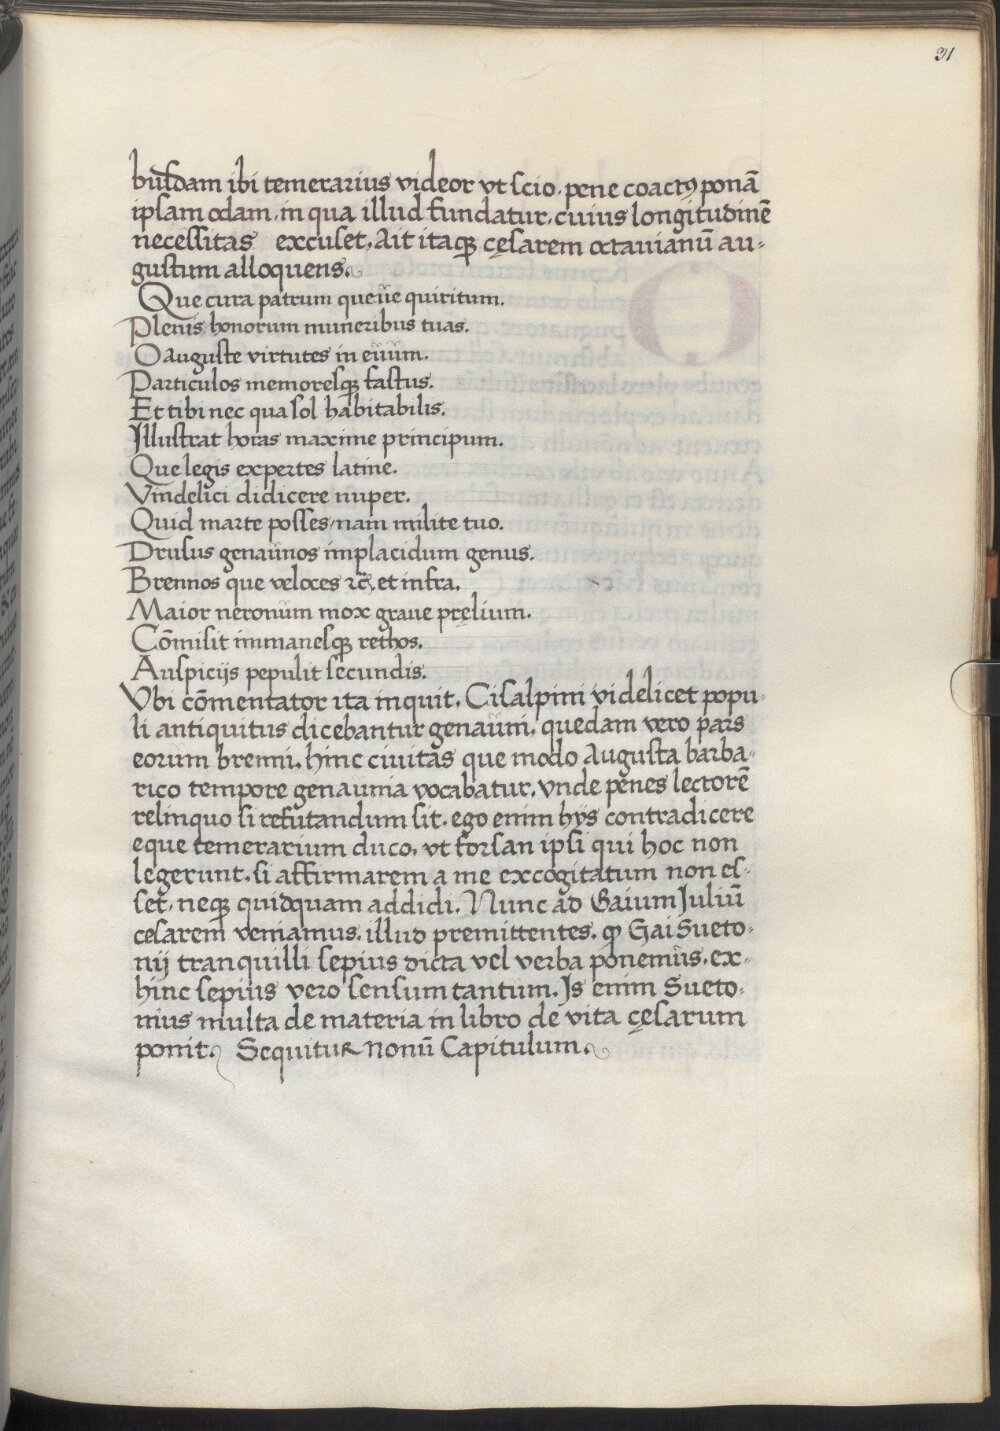 31
buſdam ibi temerarius videor vt ſcio, pene coactꝰ ponā
ipſam odam, in qua illud fundatur, cuius longitudinē
neceſſitas excuſet, Ait itaqꝫ cęſarem octauianū au-
guſtum alloquens.
Que cura patrum queue quiritum.
Plenis honorum muneribus tuas.
O auguſte virtutes in euum.
Particulos memoreſqꝫ faſtus.
Et tibi nec qua ſol habitabilis.
Illuſtrat horas maxime principum.
Que legis expertes latine.
Vindelici didicere nuper.
Quid marte poſſes, nam milite tuo.
Druſus genaunos implacidum genus.
Brennos que veloces ⁊c̄. et infra.
Maior neronum mox graue pręlium.
Cōmiſit immaneſqꝫ rethos.
Auſpicijs pepulit ſecundis.
Vbi cōmentator ita inquit, Ciſalpini videlicet popu-
li antiquitus dicebantur genauni, quedam vero pars
eorum brenni, hinc ciuitas que modo Auguſta barba-
rico tempore genaunia vocabatur, vnde penes lectorē
relinquo ſi refutandum ſit, ego enim hijs contradicere
eque temerarium duco, vt forſan ipſi qui hoc non
legerunt, ſi affirmarem a me excogitatum non eſ-
ſet, neqꝫ quidquam addidi. Nunc ad Gaium Juliū
ceſarem veniamus, illud premittentes, ꝙ Gai Sueto-
nij tranquilli ſepius dicta vel verba ponemus, ex-
hinc ſepius vero ſenſum tantum. Is enim Sueto-
nius multa de materia in libro de vita cęſarum
ponit. Sequitur nonū Capitulum.